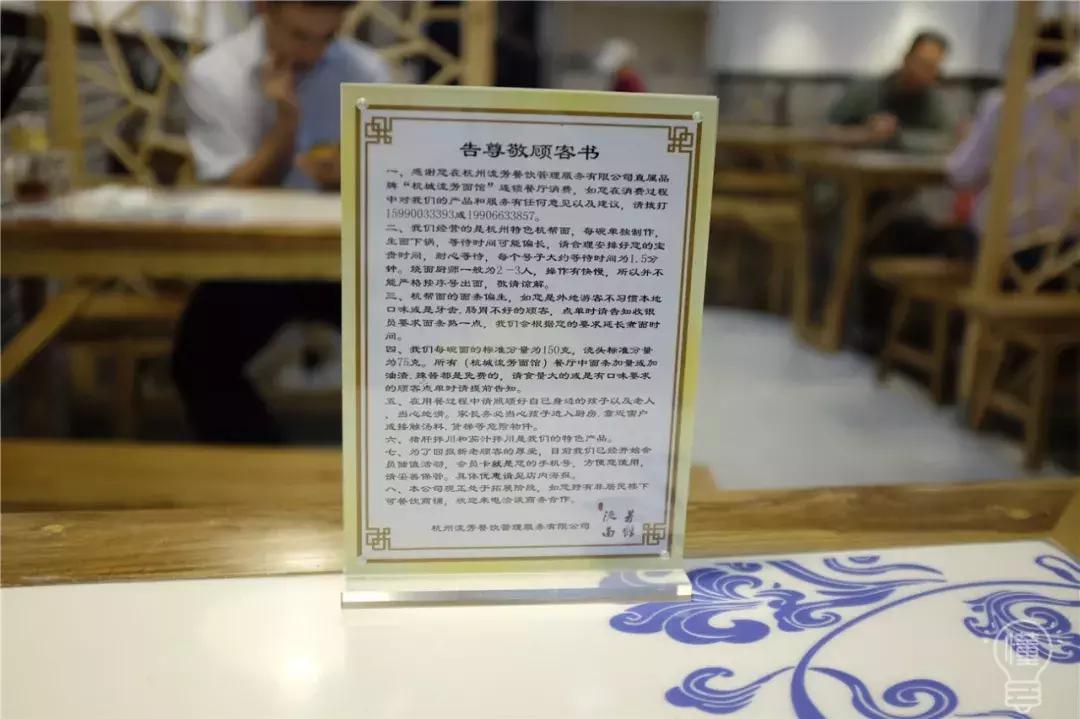 告尊敬顾客书
一、感谢您在杭州流芳餐饮管理服务有限公司直属品
牌“杭城流芳面馆”连锁餐厅消费，如您在消费过程
中对我们的产品和服务有任何意见以及建议，请拨打
15990033393或19906633857。
二、我们经营的是杭州特色杭帮面，每碗单独制作，
生面下锅，等待时间可能偏长，请合理安排好您的宝
贵时间，耐心等待，每个号子大约等待时间为1.5分
钟。烧面厨师一般为2-3人，操作有快慢，所以并不
能严格按序号出面，敬请谅解。
三、杭帮面的面条偏生，如您是外地游客不习惯本地
口味或是牙齿.肠胃不好的顾客，点单时请告知收银
员要求面条熟一点，我们会根据您的要求延长煮面时
间。
四、我们每碗面的标准分量为150克，浇头标准分量
为75克。所有（杭城流芳面馆）餐厅中面条加量或加
油渣.辣酱都是免费的，请食量大的或是有口味要求
的顾客点单时请提前告知。
五、在用餐过程中请照顾好自己身边的孩子以及老人
，当心地滑。家长务必当心孩子进入厨房.靠近窗户
或接触汤料.货梯等危险物件。
六、猪肝拌川和茄汁拌川是我们的特色产品。
七、为了回报新老顾客的厚爱，目前我们已经开始会
员储值活动，会员卡就是您的手机号，方便您使用，
请妥善保管。具体优惠请见店内海报。
八、本公司现正处于拓展阶段，如您好有非居民楼下
可餐饮商铺，欢迎来电洽谈商务合作。
杭州流芳餐饮管理服务有限公司
流芳
面馆
懂